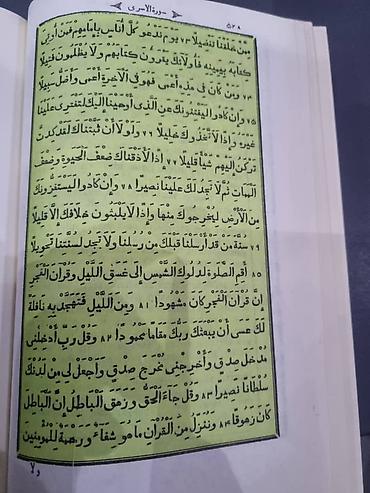 سورة الأسرى ٥٢٨
مِمَّنْ خَلَقْنَا تَفْضِيلًا ٧٣ يَوْمَ نَدْعُو كُلَّ أُنَاسٍ بِإِمَامِهِمْ فَمَنْ أُوتِىَ
كِتَابَهُ بِيَمِينِهِ فَأُولَٰئِكَ يَقْرَءُونَ كِتَابَهُمْ وَلَا يُظْلَمُونَ فَتِيلًا
٧٤ وَمَنْ كَانَ فِى هَٰذِهِ أَعْمَى فَهُوَ فِى الْآخِرَةِ أَعْمَى وَأَضَلُّ سَبِيلًا
٧٥ وَإِنْ كَادُوا لَيَفْتِنُونَكَ عَنِ الَّذِى أَوْحَيْنَا إِلَيْكَ لِتَفْتَرِىَ عَلَيْنَا
غَيْرَهُ وَإِذًا لَاتَّخَذُوكَ خَلِيلًا ٧٦ وَلَوْلَا أَنْ ثَبَّتْنَاكَ لَقَدْ كِدْتَ
تَرْكَنُ إِلَيْهِمْ شَيْئًا قَلِيلًا ٧٧ إِذًا لَأَذَقْنَاكَ ضِعْفَ الْحَيَوٰةِ وَضِعْفَ
الْمَمَاتِ ثُمَّ لَا تَجِدُ لَكَ عَلَيْنَا نَصِيرًا ٧٨ وَإِنْ كَادُوا لَيَسْتَفِزُّونَكَ
مِنَ الْأَرْضِ لِيُخْرِجُوكَ مِنْهَا وَإِذًا لَا يَلْبَثُونَ خِلَافَكَ إِلَّا قَلِيلًا
٧٩ سُنَّةَ مَنْ قَدْ أَرْسَلْنَا قَبْلَكَ مِنْ رُسُلِنَا وَلَا تَجِدُ لِسُنَّتِنَا تَحْوِيلًا
٨٠ أَقِمِ الصَّلَوٰةَ لِدُلُوكِ الشَّمْسِ إِلَى غَسَقِ اللَّيْلِ وَقُرْآنَ الْفَجْرِ
إِنَّ قُرْآنَ الْفَجْرِ كَانَ مَشْهُودًا ٨١ وَمِنَ اللَّيْلِ فَتَهَجَّدْ بِهِ نَافِلَةً
لَكَ عَسَى أَنْ يَبْعَثَكَ رَبُّكَ مَقَامًا مَحْمُودًا ٨٢ وَقُلْ رَبِّ أَدْخِلْنِى
مُدْخَلَ صِدْقٍ وَأَخْرِجْنِى مُخْرَجَ صِدْقٍ وَاجْعَلْ لِى مِنْ لَدُنْكَ
سُلْطَانًا نَصِيرًا ٨٣ وَقُلْ جَاءَ الْحَقُّ وَزَهَقَ الْبَاطِلُ إِنَّ الْبَاطِلَ
كَانَ زَهُوقًا ٨٤ وَنُنَزِّلُ مِنَ الْقُرْآنِ مَا هُوَ شِفَاءٌ وَرَحْمَةٌ لِلْمُؤْمِنِينَ
ولا